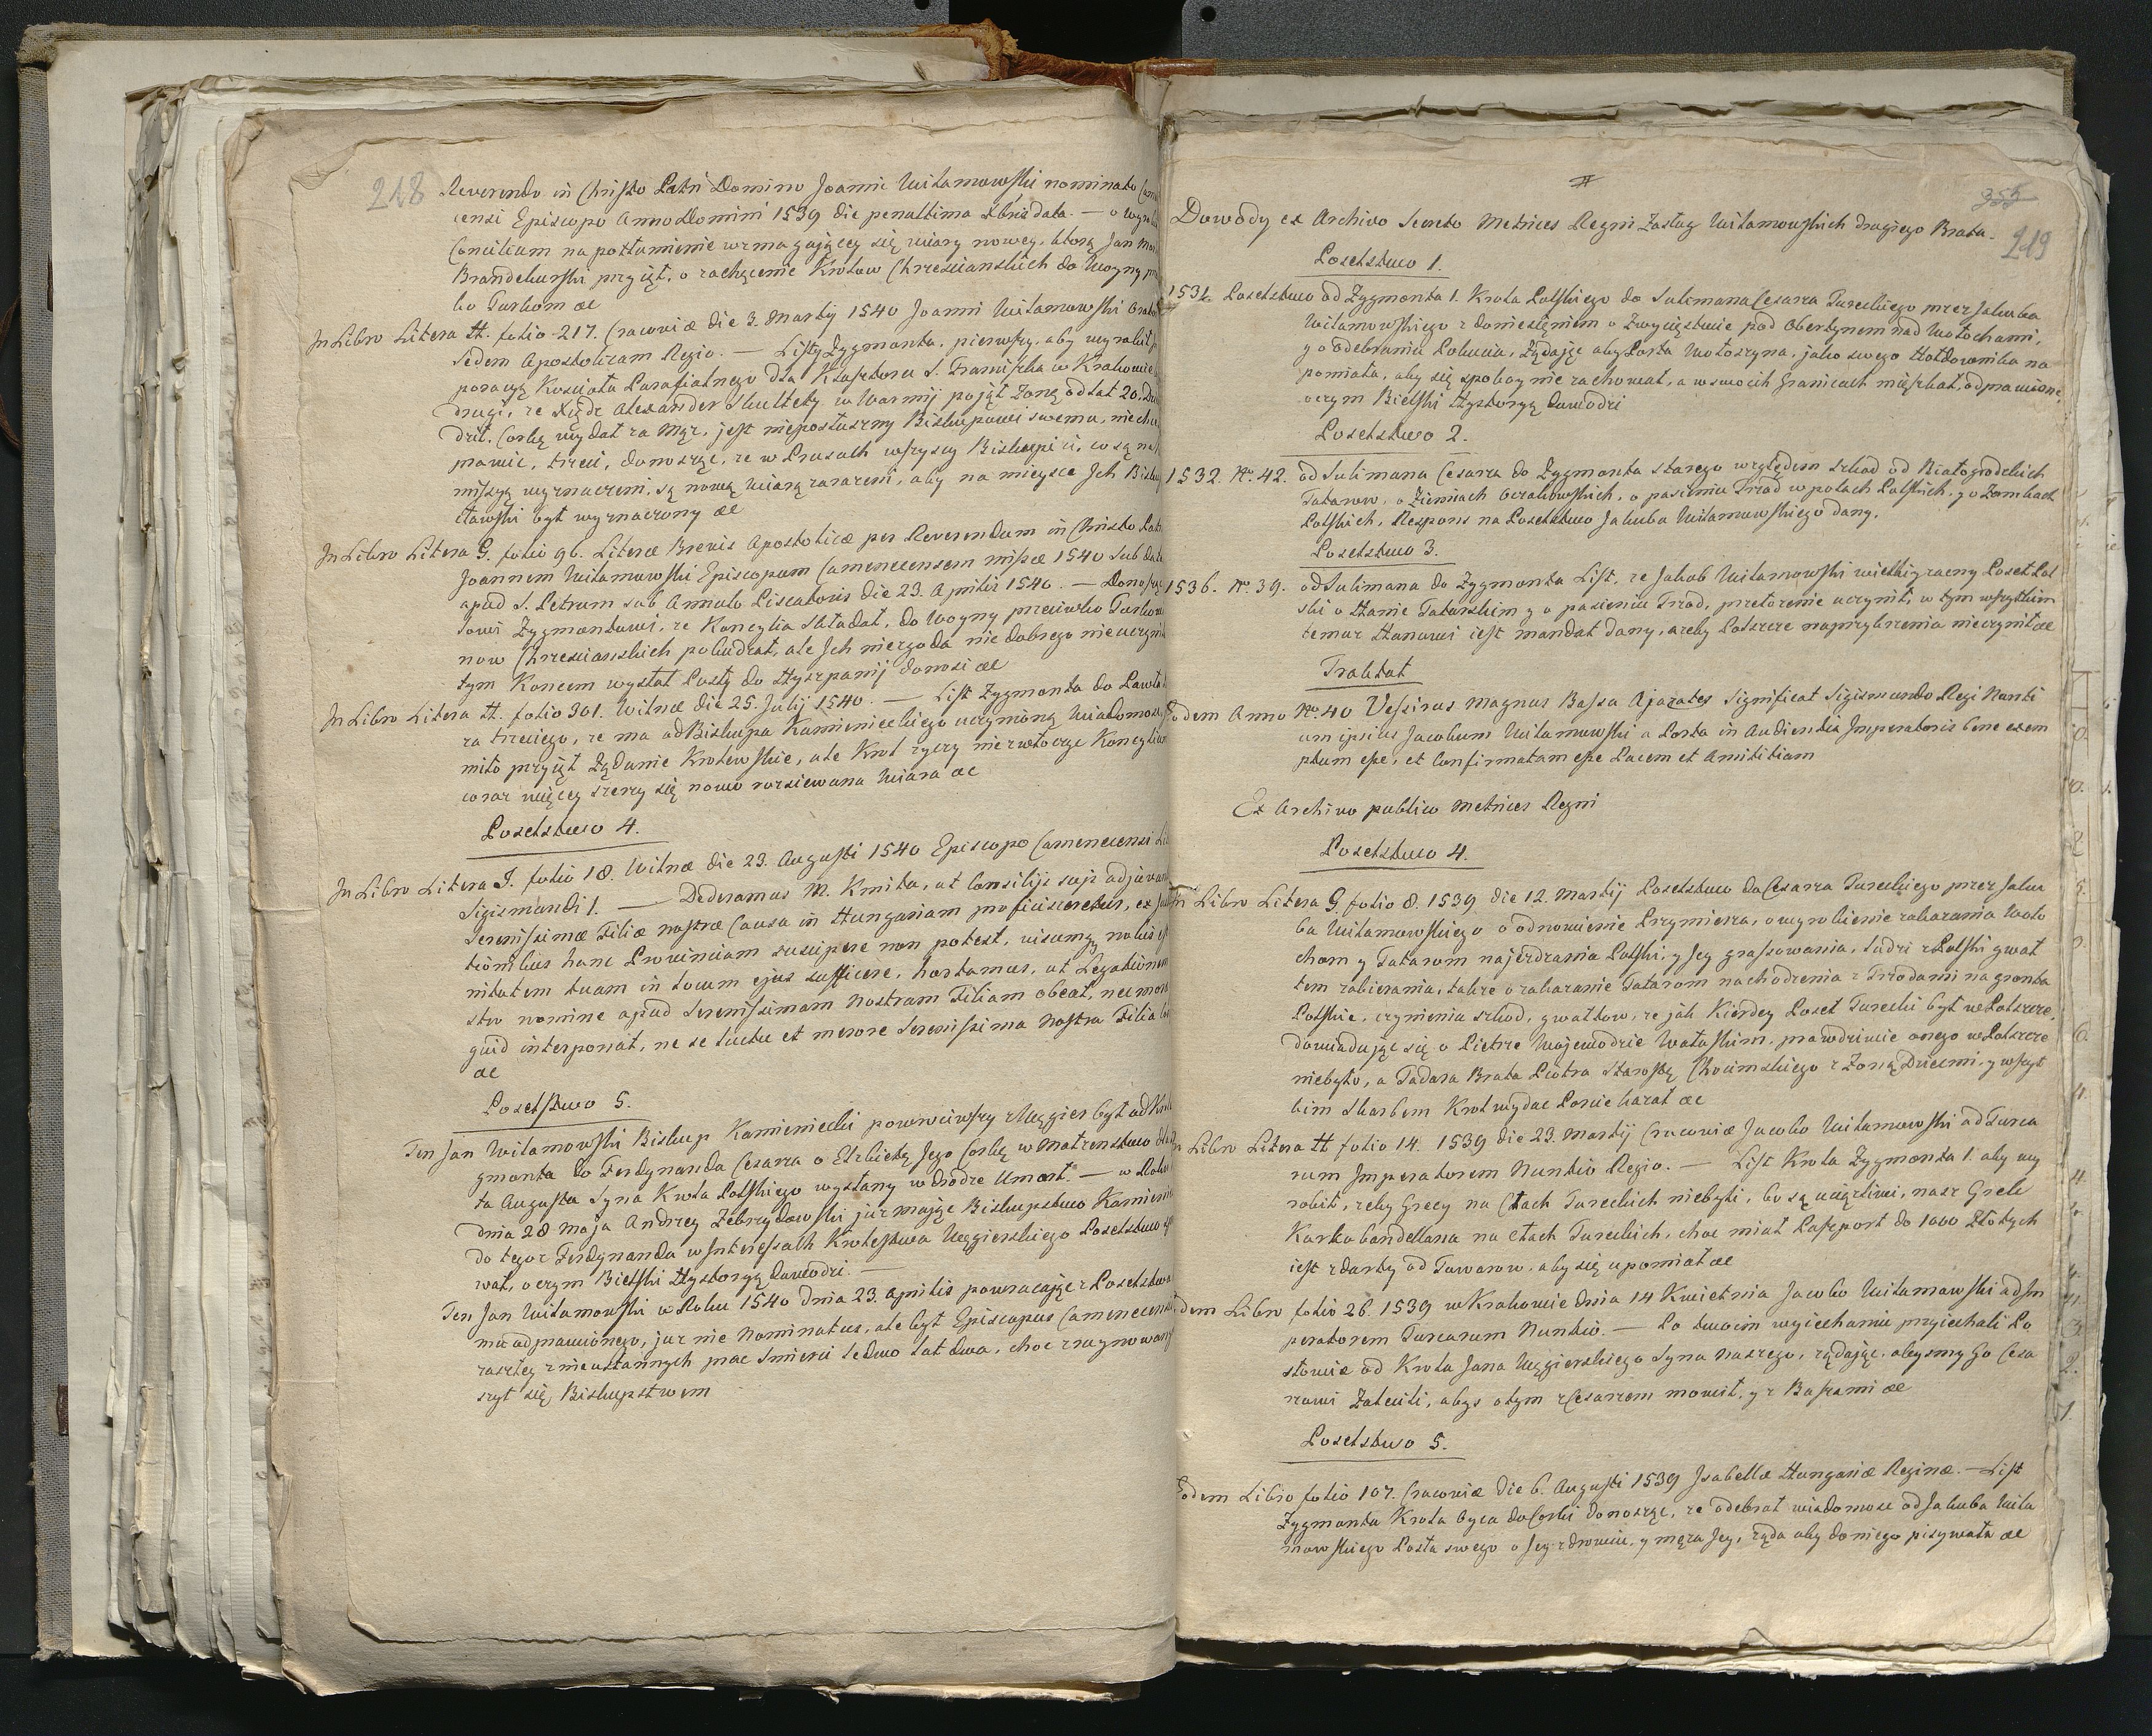 218
Reverendo in Christo Patri Domino Joanni Wilamowski nominato
censi Episcopo Anno Domini 1539 die penultima Xbris data. — o
Concilium na potłumienie wzmagającey się wiary nowey, ktorą Jan
Brandeburski przyiął, o zachęcenie Krolow Chrzescianskich do Woyny
ko Turkom &c
In Libro Litera H. folio 217. Cracoviæ die 3. Martij 1540 Joanni Wilamowski
Sedem Apostolicam Regio. — Listy Zygmonta, pierwszy, aby wyrabił
poracyą Koscioła Parafialnego dla Klasztoru S. Franciszka w Krakowie,
drugi, ze Xiądz Alexander Skultety w Warmij pojął Zonę od lat 20.
dził, Corkę wydał za Mąz, jest nieposłuszny Biskupowi swemu,
prawie, trzeci, donosząc, ze w Prusach wszyscy Biskupi ci, co są na
missyą wyznaczeni, są nową wiarą zarazeni, aby na mieysce Jch
cławski był wyznaczony &c
In Libro Litera G. folio 96. Literæ Brevis Apostolicæ per Reverendum in Christo
Joannem Wilamowski Episcopum Camenecensem missæ 1540 sub data
apud S. Petrum sub Annulo Piscatoris die 23. Aprilis 1540. — Donosząc
lowi Zygmontowi, ze Koncylia składał, do Woyny przeciwko
now Chrzescianskich pobudzał, ale Jch niezgoda nic dobrego nie
tym Koncem wysłał Posły do Hyszpanij donosi &c
In Libro Litera H. folio 301. Wilnæ die 25. Julij 1540. — List Zygmonta do Pawła
ra trzeciego, ze ma od Biskupa Kamienieckiego uczynioną
miło przyiął Ządanie Krolewskie, ale Krol zyczy nie zwłocząc
coraz więcey szerzy się nowo rozsiewana Wiara &c
Poselstwo 4.
In Libro Litera I. folio 18. Wilnæ die 23. Augusti 1540 Episcopo Camenecensi
Sigismundi 1. — Dederamus M. Kmita, ut Consilijs suis
Serenissimæ Filiæ nostræ Causa in Hungariam proficisceretur, ex
tionibus hanc Provinciam suscipere non potest, visumqz nobis
nitatem tuam in locum ejus sufficere, hortamur, ut Legationem
stro nomine apud Serenissimam Nostram Filiam obeat, nec
quid interponat, ne se luctu et merore Serenissima Nostra Filia
&c
Poselstwo 5.
Ten Jan Wilamowski Biskup Kamieniecki powrociwszy z Węgier był od
gmonta do Ferdynanda Cesarza o Elzbietę Jego Corkę w Małzenstwo
ta Augusta Syna Krola Polskiego wysłany w drodze Umarł. — w
dnia 28 Maja Andrzey Zebrzydowski juz mając Biskupstwo
do tegoz Ferdynanda w Interessach Krolestwa Węgierskiego Poselstwo
wał, o czym Bielski Hystoryą dowodzi. —
Ten Jan Wilamowski w Roku 1540 dnia 23. Aprilis powracając z Poselstwa
mu odprawionego, juz nie Nominatus, ale był Episcopus
zaszłey z nieustannych prac Smierci ledwo lat dwa, choc
szył się Biskupstwem
II
355
219
Dowody ex Archivo Secreto Metrices Regni Zasług Wilamowskich drugiego Brata.
Poselstwo 1.
1531. Poselstwo od Zygmonta 1. Krola Polskiego do Sulimana Cesarza Tureckiego przez Jakuba
Wilamowskiego z doniesieniem o Zwycięstwie pod Obertynem nad Wołochami,
y o odebraniu Pokucia, Ządając aby Posła Wołoszyna, jako swego Hołdownika na
pomniała, aby się spokoynie zachował, a w swoich Granicach mięszkał, odprawione,
o czym Bielski Hystoryą dowodzi
Poselstwo 2.
1532. No. 42. od Sulimana Cesarza do Zygmonta Starego względem szkod od Białogrodzkich
Tatarow, o Ziemiach Oczakowskich, o pasieniu Trzod w polach Polskich, y o Zamkach
Polskich, Respons na Poselstwo Jakuba Wilamowskiego dany.
Poselstwo 3.
1536. No. 39. od Sulimana do Zygmonta List, ze Jakub Wilamowski wielkiznaczny Poseł Pol
ski o Hanie Tatarskim y o pasieniu Trzod, przełozenie uczynił, w tym wszytkim
temuz Hanowi iest mandat dany, azeby Polszcze naprzykrzenia nie czynił &c
Traktat
Eodem Anno No. 40 Vessirus Magnus Bassa Ajazates Significat Sigismundo Regi Nunti
um ipsius Jacobum Wilamowski a Porta in Audientia Imperatoris bene exem
ptum esse, et Confirmatam esse Pacem et Amititiam
Ex Archivo publico Metrices Regni
Poselstwo 4.
In Libro Litera G. folio 8. 1539 die 12. Martij Poselstwo do Cesarza Tureckiego przez Jaku
ba Wilamowskiego o odnowienie Przymierza, o wyrobienie zakazania Woło
chom y Tatarom najezdzania Polski, y Jey grassowania, Ludzi z Polski gwał
tem zabierania, takze o zakazanie Tatarom nachodzenia z Trzodami na gronta
Polskie, czynienia szkod, gwałtow, ze jak Kierdey Poseł Turecki był w Polszcze,
dowiadując się o Pietrze Wojewodzie Wołoskim, prawdziwie onego w Polszcze
niebyło, a Tadara Brata Piotra Starostę Chocimskiego z Zoną, Dziecmi, y wszyt
kim Skarbem Krol wydac Porcie kazał &c
In Libro Litera H folio 14. 1539 die 23. Martij Cracoviæ Jacobo Wilamowski ad Turca
rum Imperatorem Nuntio Regio. — List Krola Zygmonta 1. aby wy
robił, zeby Grecy na Cłach Tureckich niebyli, bo są uciązliwi, nasz Grek
Karkabandellana na cłach Tureckich, choc miał Paszport do 1000 Złotych
iest zdarty od Towarow, aby się upomniał &c
Eodem Libro folio 26. 1539 w Krakowie dnia 14 Kwietnia Jacobo Wilamowski ad Im
peratorem Turcarum Nuntio. — Po twoim wyiechaniu przyiechali Po
słowie od Krola Jana Węgierskiego Syna Naszego, ządając, abysmy Go Cesa
rzowi Zalecili, abys o tym z Cesarzem mowił, y z Baszami &c
Poselstwo 5.
Eodem Libro folio 107. Cracoviæ die 6. Augusti 1539 Isabellæ Hungariæ Reginæ. — List
Zygmonta Krola Oyca do Corki donosząc, ze odebrał wiadomosc od Jakuba Wila
mowskiego Posła swego o Jey zdrowiu, y męza Jey, ząda aby do niego pisywała &c